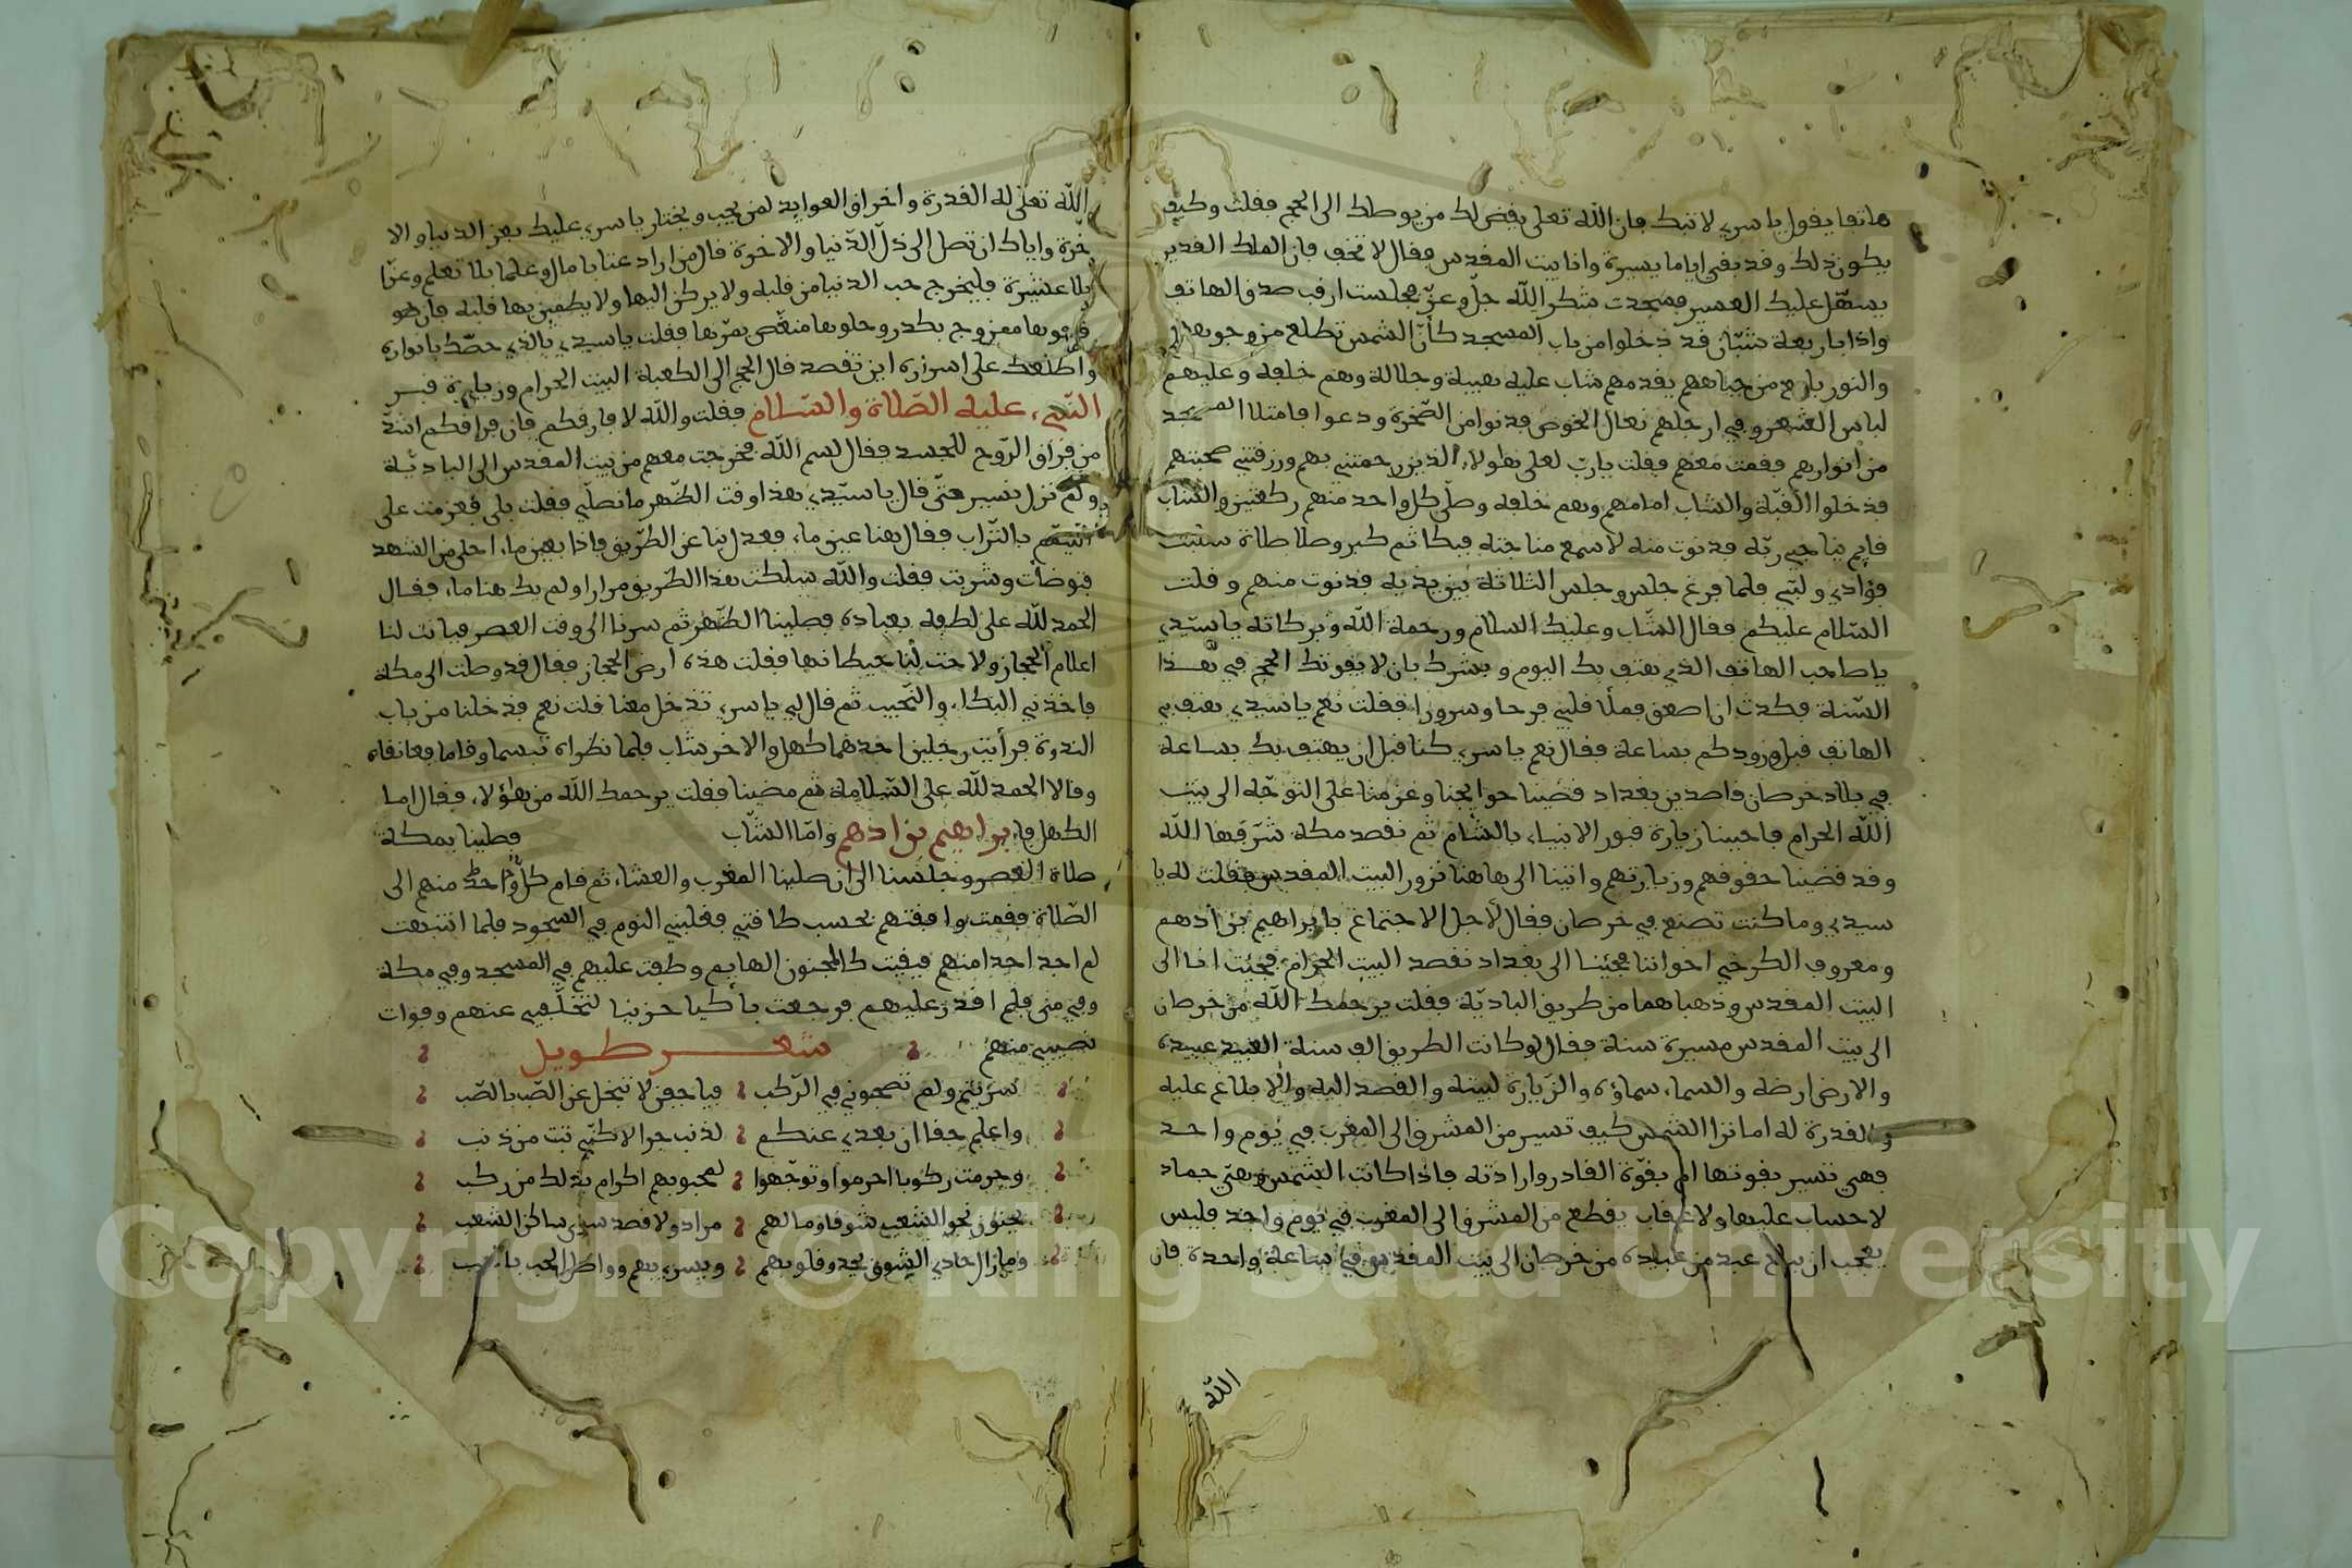 هاتفا يقول ياسري لا تبك فان الله تعلى يقض لك من يوصلك الى الحج فقلت وكيف
يكون ذلك وقد بقي اياما يسيرة وانا ببيت المقدس فقال لا تخف فان الملك القدير
يسهّل عليك العسير فسجدت شكرا لله جلّ وعزّ فجلست ارقب صدق الهاتف
واذا باربعة شبّان قد دخلوا من باب المسجد كأنّ الشمس تطلع من وجوههم
والنور يلمع من جباههم يقدمهم شاب عليه هيبة وجلالة وهم خلفه وعليهم
لباس الشعر وفي ارجلهم نعال الخوص فدنوا من الصّخرة ودعوا فامتلا المسجد
من انوارهم فقمت معهم فقلت يا ربّ لعلى هؤلاء الذين رحمتني بهم ورزقتني صحبتهم
فدخلوا القبّة والشاب امامهم وهم خلفه وصلّى كل واحد منهم ركعتين والشاب
قايم يناجي ربّه فدنوت منه لاسمع مناجته فبكا ثم كبر وصلا صلاة سلبت
فؤادي ولبّي فلما فرغ جلس وجلس الثلاثة بين يديه فدنوت منهم وقلت
السّلام عليكم فقال الشّاب وعليك السلام ورحمة الله وبركاته يا سيّدي
يا صاحب الهاتف الذي هتف بك اليوم وبشرك بان لا يفوتك الحج في هذا
السّنة فكدت ان اصعق فملأ قلبي فرحا وسرورا فقلت نعم يا سيدي هتف بي
الهاتف قبل ورودكم بساعة فقال نعم ياسري كنا قبل ان يهتف بك بساعة
في بلاد خرصان قاصدين بغداد فقضينا حوايجنا وعزمنا على التوجّه الى بيت
الله الحرام فاحببنا زيارة قبور الانبياء بالشّام ثم نقصد مكة شرّفها الله
وقد قضينا حقوقهم وزيارتهم واتينا الى هاهنا نزور البيت المقدس فقلت له يا
سيدي وما كنت تصنع في خرصان فقال لأجل الاجتماع بابراهيم بن أدهم
ومعروف الكرخي اخواننا فجئنا الى بغداد نقصد البيت الحرام فجئت انا الى
البيت المقدس وذهبا هما من طريق الباديّة فقلت يرحمك الله من خرصان
الى بيت المقدس مسيرة سنة فقال لو كانت الطريق الف سنة العبيد عبيده
والارض ارضه والسماء سماؤه والزّيارة لبيته والقصد اليه والابلاغ عليه
والقدرة له اما ترا الشّمس كيف تسير من المشرق الى المغرب في يوم واحد
فهي تسير بقوتها ام بقوّة القادر وارادته فاذا كانت الشمس وهي جماد
لا حساب عليها ولا عقاب يقطع من المشرق الى المغرب في يوم واحد فليس
بعجب ان يبلغ عبد من عباده من خرصان الى بيت المقدس في ساعة واحدة فان
الله
الله تعلى له القدرة واخراق العوايد لمن يحب ويختار ياسري عليك بعز الدنيا والا
خرة واياك ان تصل الى ذلّ الدّنيا والاخرة قال من اراد غنا بلا مال وعلما بلا تعلم وعزّا
بلا عشيرة فليخرج حب الدنيا من قلبه ولا يركن اليها ولا يطمئن بها قلبه فان
صفوها ممزوج بكدر وحلوها منغّص بمرّها فقلت يا سيدي بالذي خصّك بانواره
واطلعك على اسراره اين تقصد قال الحج الى الكعبة البيت الحرام وزيارة قبر
النّبي عليه الصّلاة والسّلام فقلت والله لا فارقكم فان فراقكم اشدّ
من فراق الرّوح للجسد فقال لسم الله فخرجت معهم من بيت المقدس الى الباديّة
ولم نزل نسير حتّى قال يا سيّدي هذا وقت الظّهر ما نصلّي فقلت بلى فعزمت على
التيمّم بالتّراب فقال هنا عين ماء فعدل بنا عن الطّريق فاذا بعين ماء احلى من الشهد
فتوضأت وشربت فقلت والله سلكت هذا الطّريق مرارا ولم يك هنا ماء فقال
الحمد لله على لطفه بعباده فصلينا الظّهر ثم سرنا الى وقت العصر فبانت لنا
اعلام الحجاز ولاحت لنا حيطانها فقلت هذه ارض الحجاز فقال قد وصلت الى مكة
فاخذني البكاء والنّحيب ثم قال لي ياسري تدخل معنا قلت نعم فدخلنا من باب
الندوة فرأيت رجلين احدهما كهل والاخر شاب فلما نظراه تبسما وقاما فعانقاه
وقالا الحمد لله على السّلامة ثم مضينا فقلت يرحمك الله من هؤلاء فقال اما
الكهل فابراهيم بن ادهم وامّا الشّاب فصلينا بمكة
صلاة العصر وجلسنا الى ان صلينا المغرب والعشاء ثم قام كل واحد منهم الى
الصّلاة فقمت وافقتهم بحسب طاقتي فغلبني النوم في السّجود فلما انتبهت
لم اجد احدا منهم فبقيت كالمجنون الهايم وطفت عليهم في المسجد وفي مكة
وفي منى فلم اقدر عليهم فرجعت باكيا حزينا لتخلّفي عنهم وفوات
نصيبي منهم
شعر طويل
سريتم ولم تصحبوني في الرّكب فيا جفن لا تبخل عن الصّب بالصّب
واعلم جفا ان بعدي عنكم لذنب جرا لاكنّي تبت من ذنب
وحرمت ركوبا احرموا وتوجّهوا لمحبوبهم اكرام بذلك من ركب
يحنون نحو الشعب شوقا وما لهم مراد ولا قصد سوى ساكن الشعب
وما زال حادي الشوق يحدو قلوبهم ويسري بهم